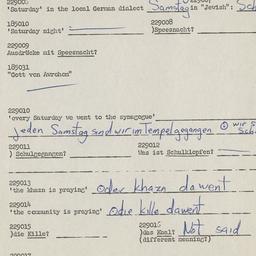 'Saturday' in the local German dialect Samstag in "Jewish":
185010 229008
'Saturday night' )Speesnacht?
229009
Ausdrücke mit Speesnacht?
185031
"Gott von Avrohom"
229010
'every Saturday we went to the synagogue'
jeden Samstag sind wir im Tempel gegangen
229011 229012
) Schulgegangen? Was ist Schulklopfen?
229013
'the khazn is praying' Oder khazn dawent
229014
'the community is praying' Odie kille dawent
229015 229016
)die Kille? )das Kaal? Not said
(different meaning?)